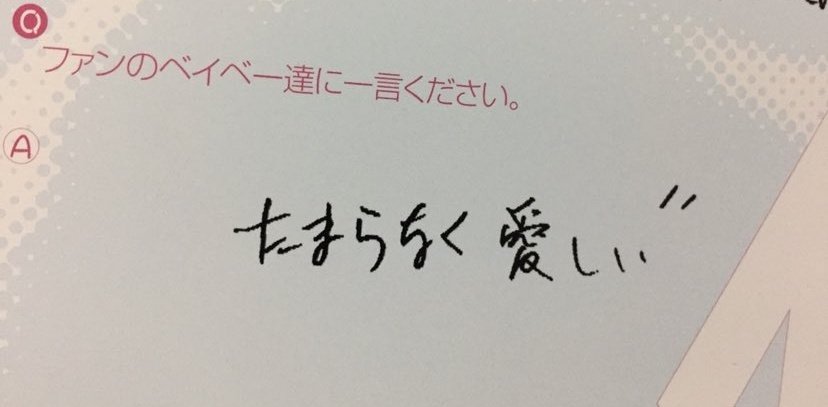 Q
ファンのベイベー達に一言ください。
A
たまらなく愛しい〃